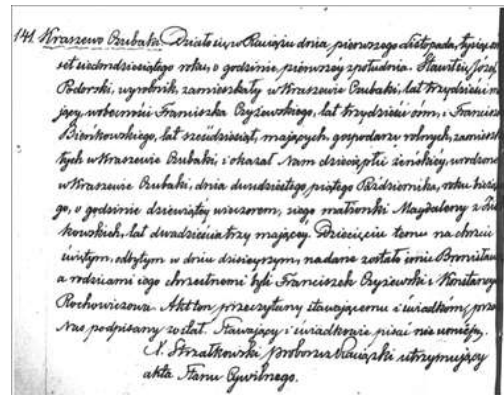 141. Kraszewo Czubaki. Działo się w Raciążu dnia pierwszego Listopada, tysiąc
set siedmdziesiątego roku, o godzinie pierwszéj z południa. Stawił się Józef
Podorski, wyrobnik, zamieszkały w Kraszewie Czubaki, lat trzydzieści
jący, w obecności Franciszka Czyżewskiego, lat trzydzieści ośm, i Francisz
Bieńkowskiego, lat sześćdziesiąt, mających, gospodarzy rolnych, zamiesz
łych w Kraszewie Czubaki, i okazał Nam dziecię płci żeńskiéj, urodzone
w Kraszewie Czubaki, dnia dwudziestego piątego Października, roku bieżą
go, o godzinie dziewiątéj wieczorem, z jego małżonki Magdaleny z
kowskich, lat dwadzieścia trzy mającéj. Dziecięciu temu na chrzcie
świętym, odbytym w dniu dzisiejszym, nadane zostało imie Bronisława
a rodzicami jego chrzestnemi byli Franciszek Czyżewski i Konstancya
Rochowiczowa. Akt ten przeczytany stawającemu i świadkom, przez
Nas podpisany został. Stawający i świadkowie pisać nie umieją.
X. Strzałkowski proboszcz Raciąski utrzymujący
akta Stanu Cywilnego.